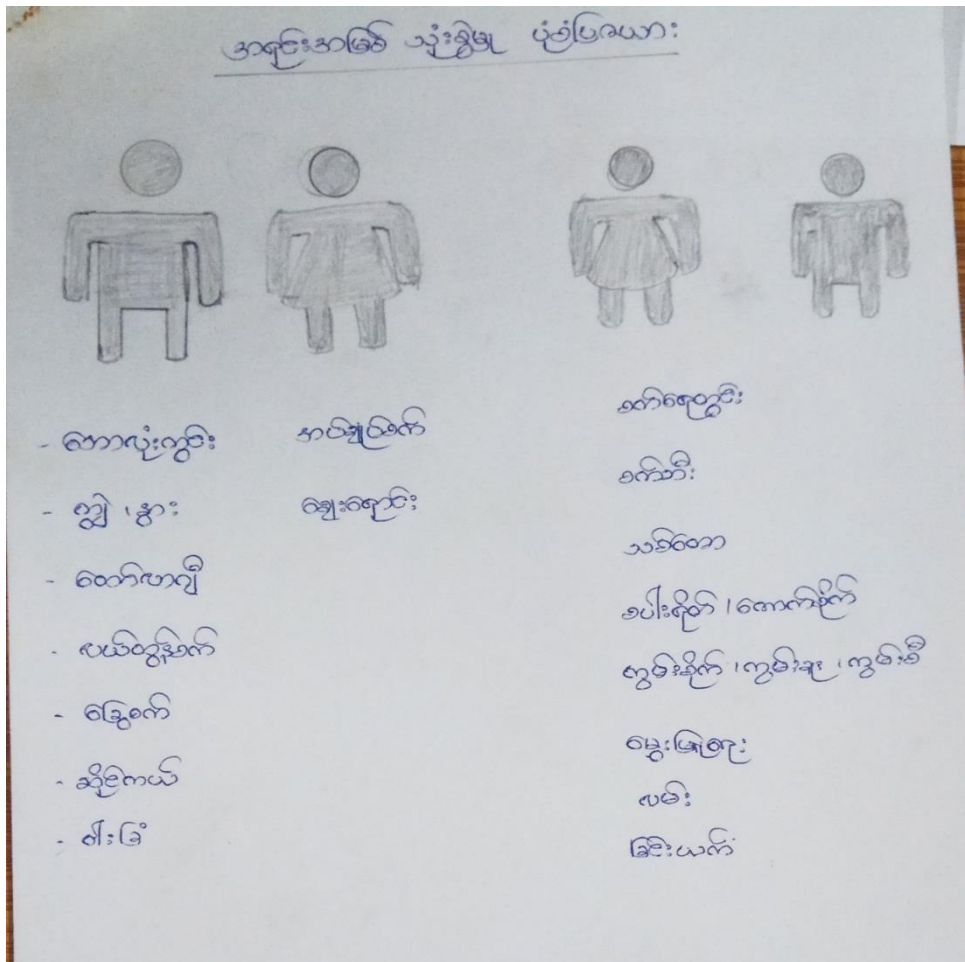 အရင်းအမြစ် သုံးစွဲမှု ပုံစံပြဇယား
- ဘောလုံးကွင်း
- ကျွဲ၊ နွား
- ထော်လာဂျီ
- လယ်ထွန်စက်
- ခြွေစက်
- ဆိုင်ကယ်
- ဝါးခြံ
အပ်ချုပ်စက်
ဈေးရောင်း
စက်ရေတွင်း
စက်ဘီး
သစ်တော
စပါးရိတ်၊ ကောက်စိုက်
ကွမ်းစိုက်၊ ကွမ်းခူး၊ ကွမ်းစီ
မွေးမြူရေး
လမ်း
ခြင်းယက်